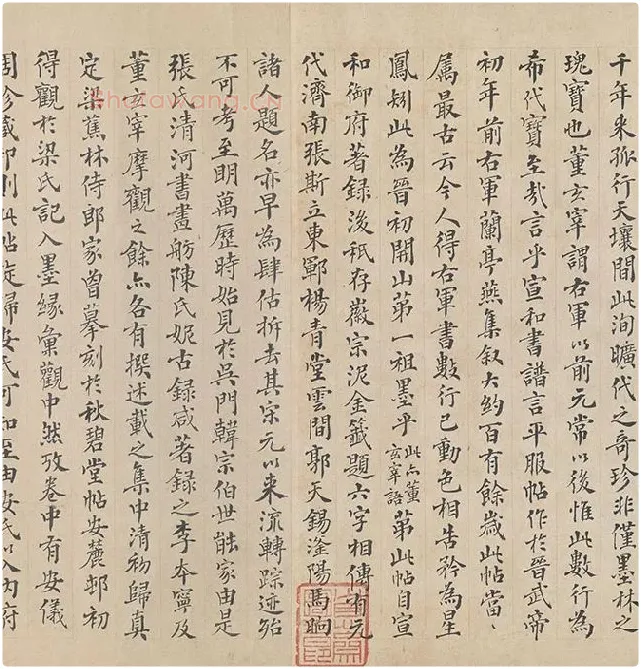 千年来孤行天壤間此洵曠代之奇珍非僅墨林之
瑰寶也董玄宰謂右軍以前元常以後惟此數行為
希代寶至哉言乎宣和書譜言平服帖作於晉武帝
初年前右軍蘭亭燕集叙大約百有餘歲此帖當〻
属最古云今人得右軍書數行已動色相告矜為星
鳳矧此為晉初開山第一祖墨乎此亦董玄宰語第此帖自宣
和御府著録後祇存徽宗泥金籤題六字相傳有元
代濟南張斯立東鄆楊青堂雲間郭天錫滏陽馬晌
諸人題名亦早為肆估拆去其宋元以来流轉踪迹殆
不可考至明萬歷時始見於吳門韓宗伯世能家由是
張氏清河書畫舫陳氏妮古録咸著録之李本寧及
董玄宰摩觀之餘亦各有撰述載之集中清初歸真
定梁蕉林侍郎家曾摹刻於秋碧堂帖安麓邨初
得觀於梁氏記入墨緣彙觀中然攷卷中有安儀
周珍藏印則此帖旋歸安氏可知至由安氏以入內府
shufawang.cn